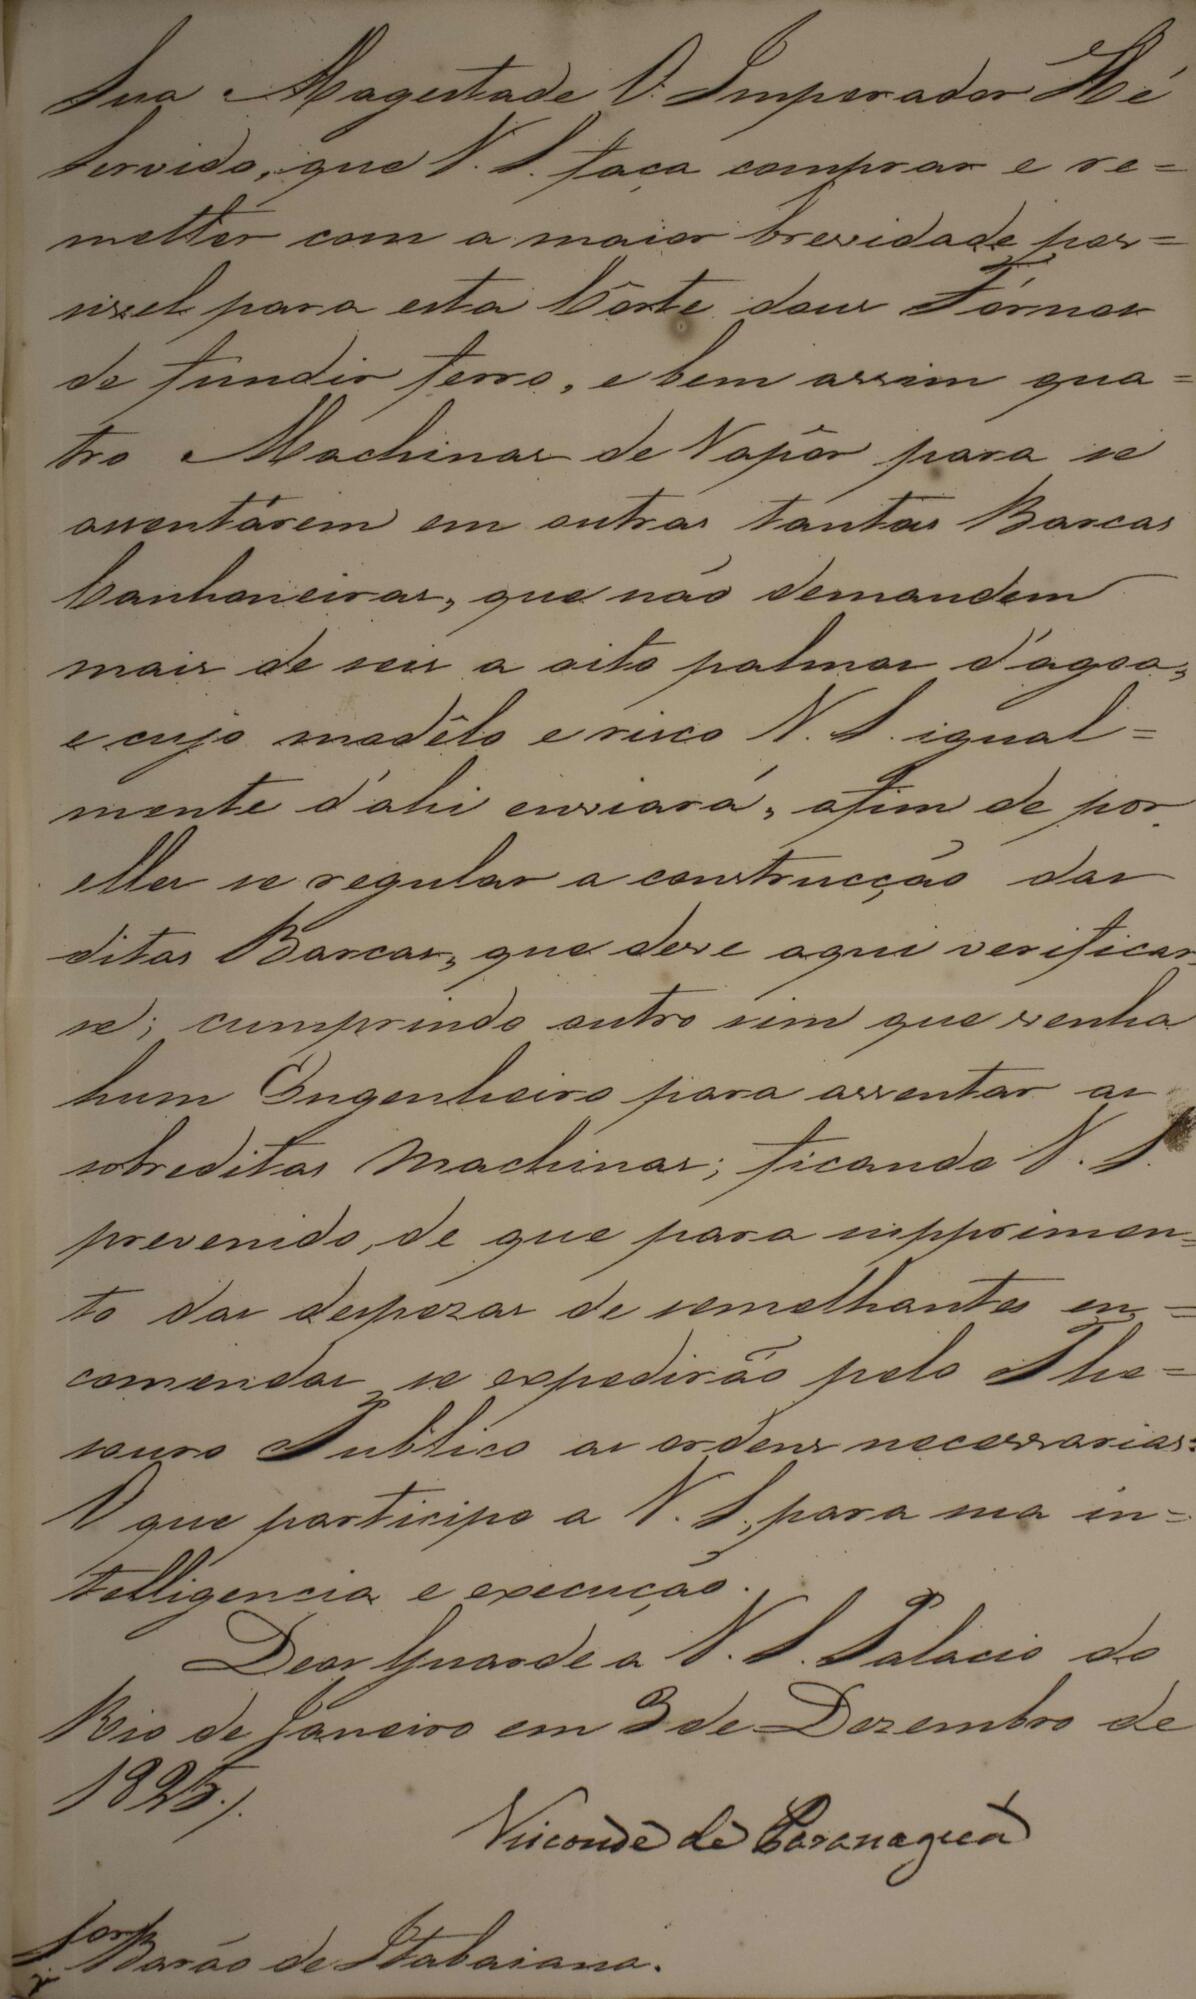 Sua Magestade O Imperador Hé
Servido, que V. S. faça comprar e re=
metter com a maior brevidade pos=
sivel para esta Côrte dous Fórnos
de fundir ferro, e bem assim qua=
tro Machinas de Vapôr para se
assentárem em outras tantas Barcas
Canhoneiras, que não demandem
mais de seis a oito palmos d'agoa,
e cujo modêlo e risco V. S. igual=
mente d'ahi enviará, afim de por
elles se regular a construcção das
ditas Barcas, que deve aqui verificar
se; cumprindo outro sim que venha
hum Engenheiro para assentar as
sobreditas Machinas; ficando V. S.
prevenido, de que para supprimen=
to das despezas de semelhantes en=
comendas se expedirão pelo The=
souro Publico as ordens necessarias:
O que participo a V. S., para sua in=
telligencia e execução.
Deos Guarde a V. S. Palacio do
Rio de Janeiro em 3 de Dezembro de
1825./.
Visconde de Paranaguá
Sor Barão de Itabaiana.